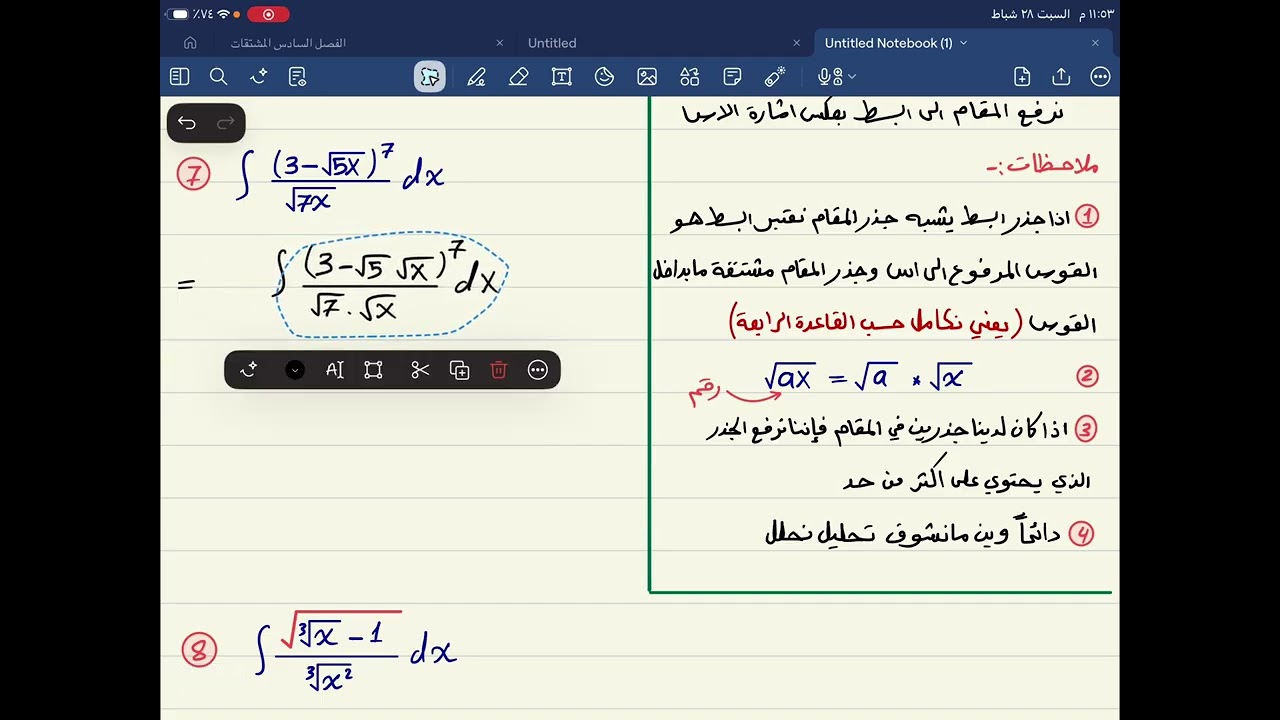 ١١:٥٣ م السبت ٢٨ شباط
٪٧٤
الفصل السادس المشتقات
Untitled
Untitled Notebook (1)
نرفع المقام الى البسط بعكس اشارة الاس
ملاحظات :-
① اذا جذر ابسط يشبه جذر المقام نعتبر البسط هو
القوس المرفوع الى اس وجذر المقام مشتقة ما بداخل
القوس (يعني نكامل حسب القاعدة الرابعة)
② √ax = √a * √x
رقم
③ اذا كان لدينا جذرين في المقام فإننا نرفع الجذر
الذي يحتوي على أكثر من حد
④ دائماً وين ما نشوف تحليل نحلل
⑦ ∫ (3-√5x)^7 / √7x dx
= ∫ (3-√5 √x)^7 / √7 . √x dx
⑧ ∫ √(∛x - 1) / ∛x² dx